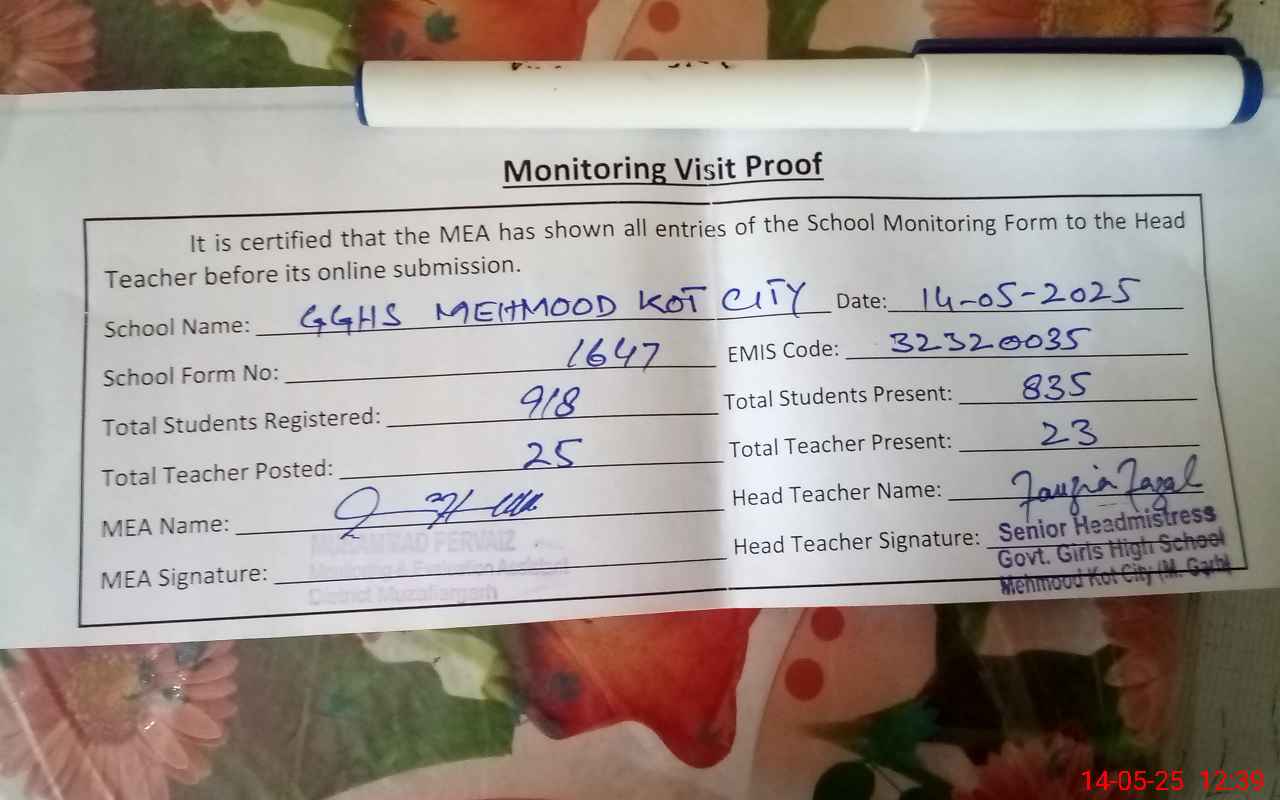 Monitoring Visit Proof
It is certified that the MEA has shown all entries of the School Monitoring Form to the Head
Teacher before its online submission.
School Name: GGHS MEHMOOD KOT CITY Date: 14-05-2025
School Form No: 1647 EMIS Code: 32320035
Total Students Registered: 918 Total Students Present: 835
Total Teacher Posted: 25 Total Teacher Present: 23
MEA Name: Head Teacher Name: Fauzia Fazal
MEA Signature: Head Teacher Signature:
MUHAMMAD PERVAIZ
Monitoring & Evaluation Assistant
District Muzaffargarh
Senior Headmistress
Govt. Girls High School
Mehmood Kot City (M. Garh)
14-05-25 12:39